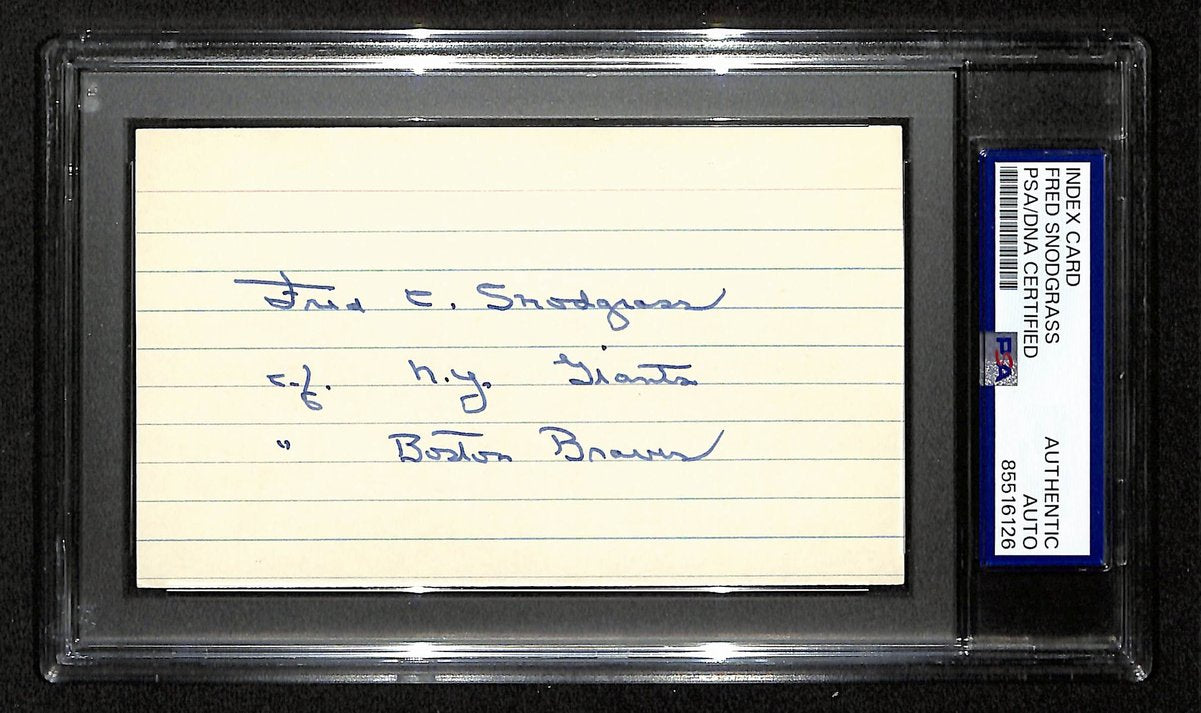 Fred C. Snodgrass
c.f. N.Y. Giants
" Boston Braves
INDEX CARD
FRED SNODGRASS
PSA/DNA CERTIFIED
AUTHENTIC
AUTO
85516126
PSA